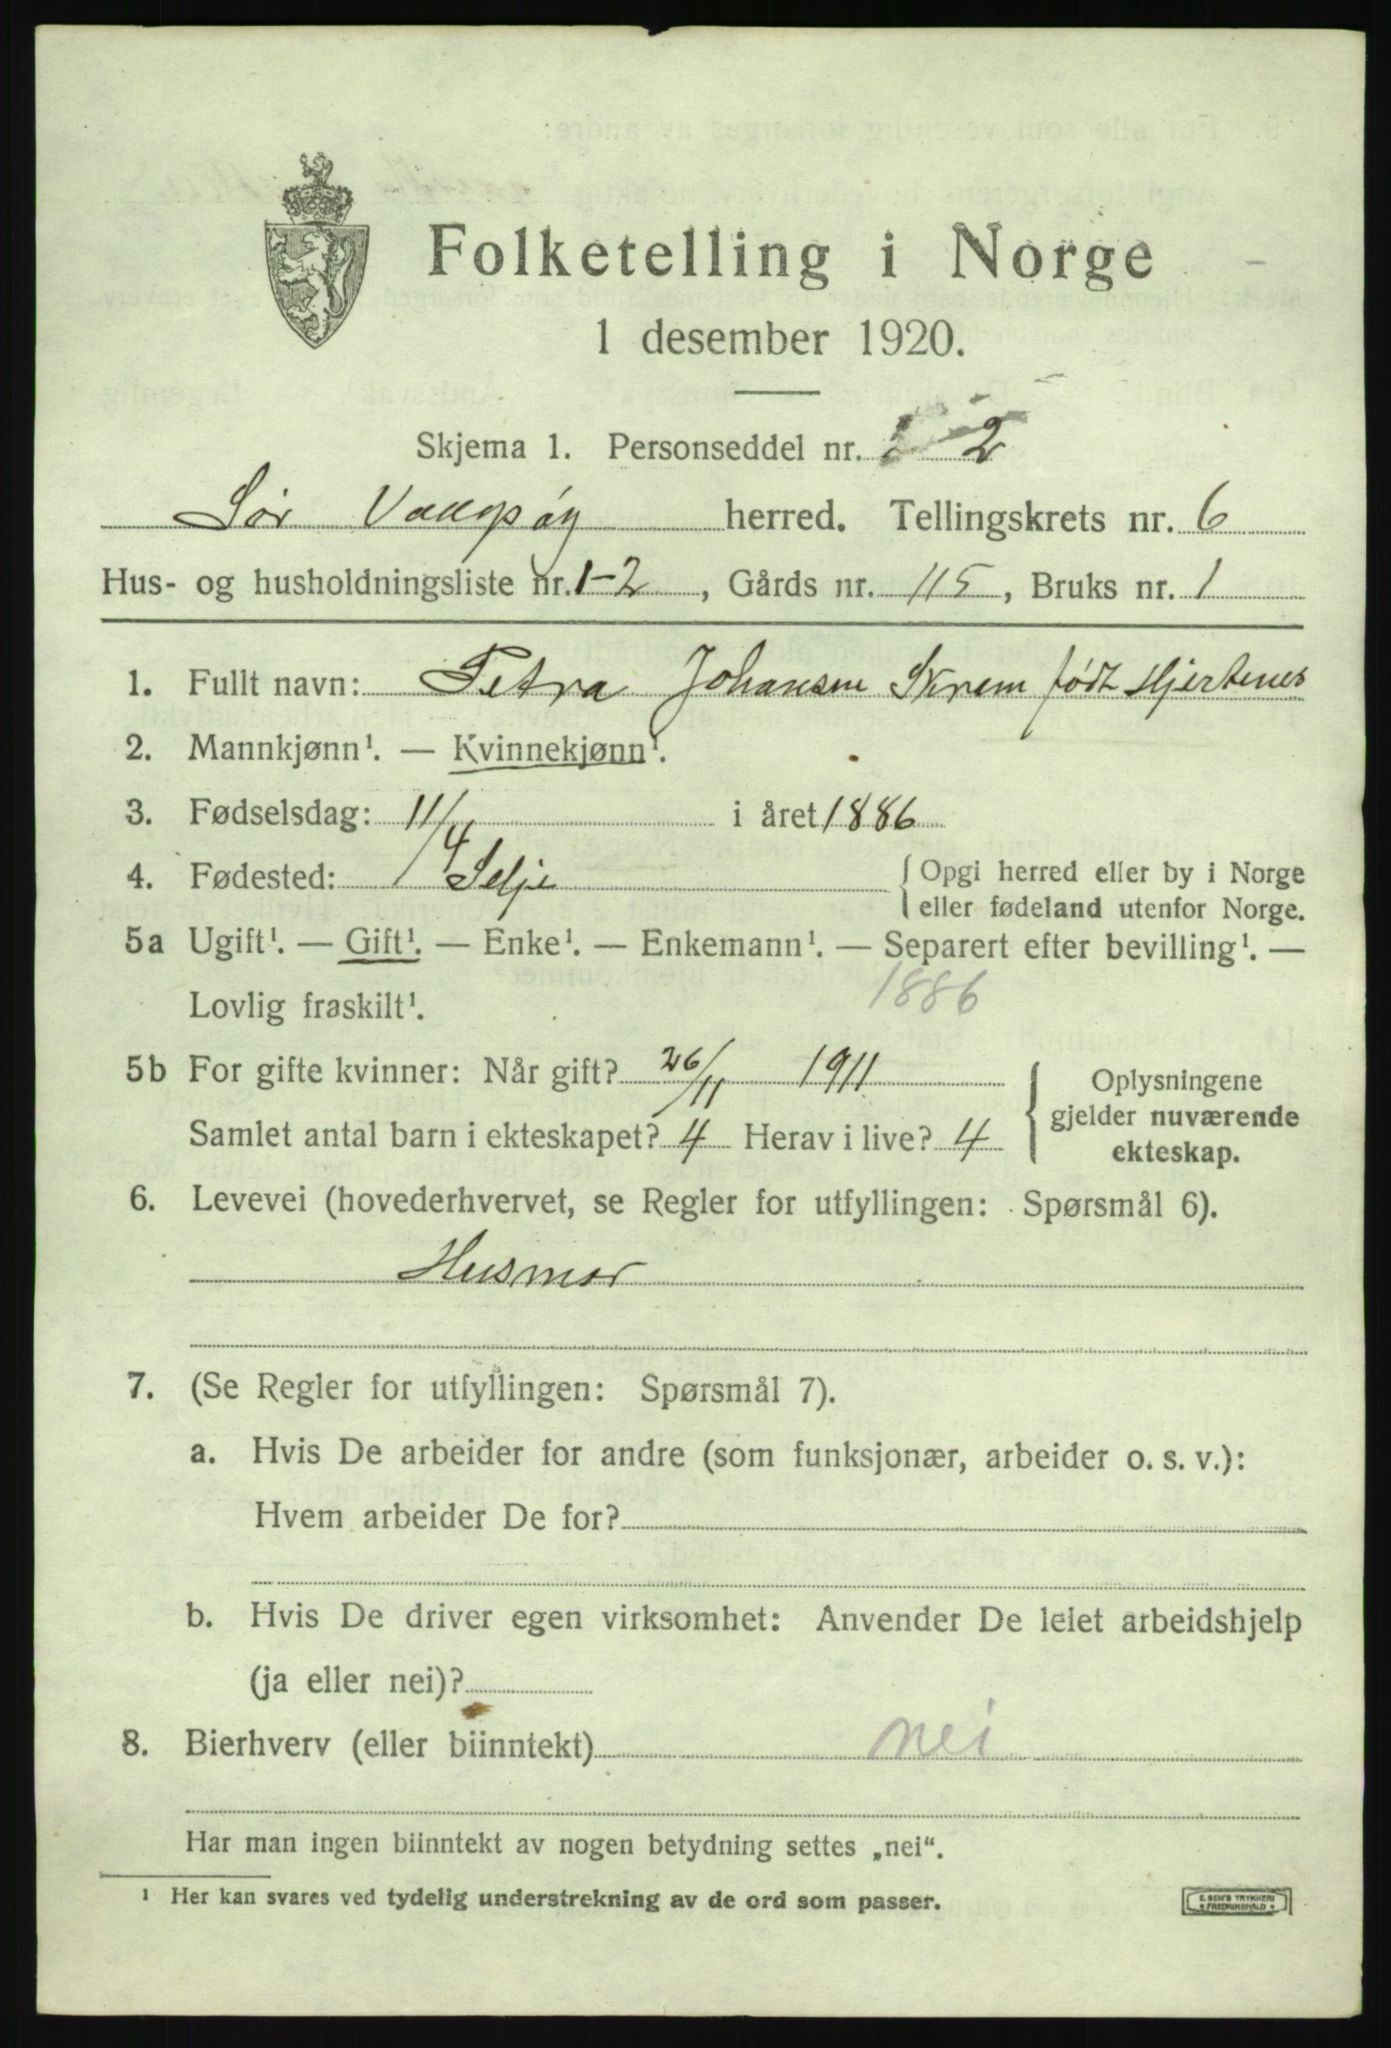 Folketelling i Norge
1 desember 1920.
Skjema 1. Personseddel nr. 2
Sør Vaagsøy herred. Tellingskrets nr. 6
Hus- og husholdningsliste nr. 1-2, Gårds nr. 115, Bruks nr. 1
1. Fullt navn: Petra Johansen Skrem født Hjertenes
2. Mannkjønn¹. — Kvinnekjønn¹.
3. Fødselsdag: 11/4 i året 1886
4. Fødested: Selje { Opgi herred eller by i Norge
eller fødeland utenfor Norge.
5a Ugift¹. — Gift¹. — Enke¹. — Enkemann¹. — Separert efter bevilling¹. —
Lovlig fraskilt¹. 1886
5b For gifte kvinner: Når gift? 26/11 1911
Samlet antal barn i ekteskapet? 4 Herav i live? 4
{ Oplysningene
gjelder nuværende
ekteskap.
6. Levevei (hovederhvervet, se Regler for utfyllingen: Spørsmål 6).
Husmor
7. (Se Regler for utfyllingen: Spørsmål 7).
a. Hvis De arbeider for andre (som funksjonær, arbeider o. s. v.):
Hvem arbeider De for?
b. Hvis De driver egen virksomhet: Anvender De leiet arbeidshjelp
(ja eller nei)?
8. Bierhverv (eller biinntekt) nei
Har man ingen biinntekt av nogen betydning settes „nei“.
¹ Her kan svares ved tydelig understrekning av de ord som passer.
E. SEM'S TRYKKERI
FREDRIKSHALD